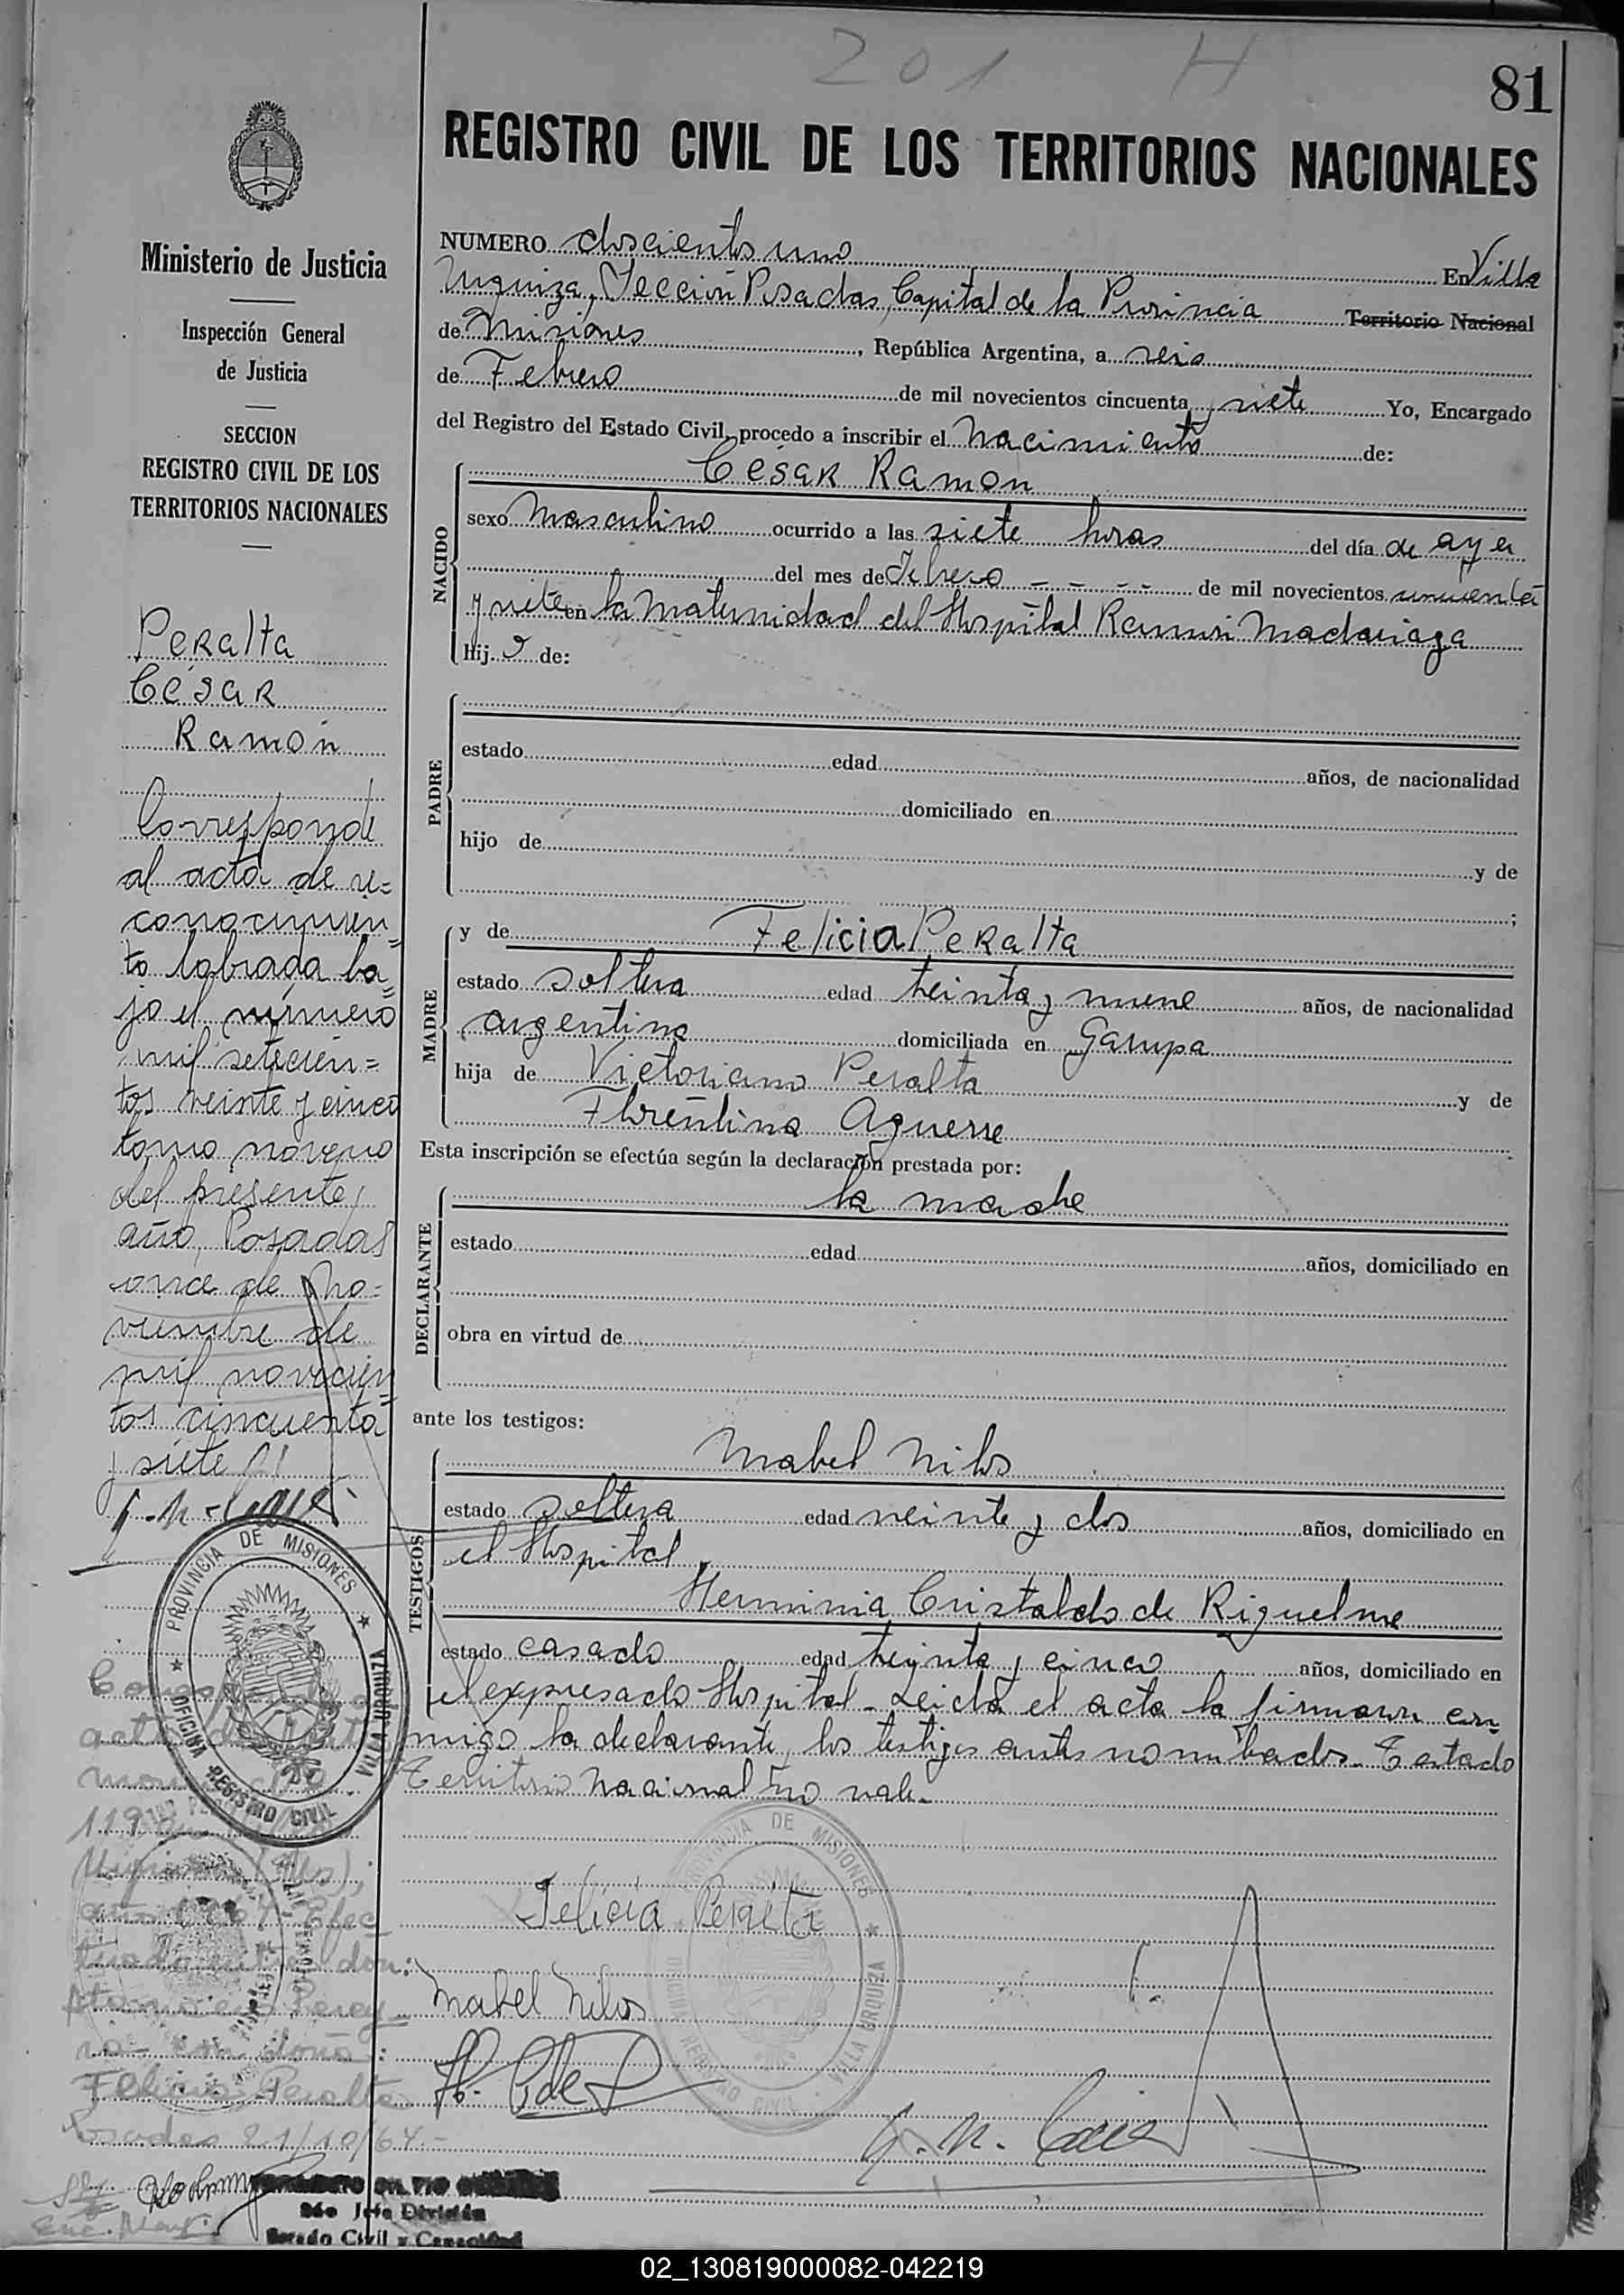 201 H
81
REGISTRO CIVIL DE LOS TERRITORIOS NACIONALES
Ministerio de Justicia
Inspección General
de Justicia
SECCION
REGISTRO CIVIL DE LOS
TERRITORIOS NACIONALES
Peralta
César
Ramón
Corresponde
al acta de re=
conocimien=
to labrada ba=
jo el número
mil setecien=
tos veinte y cinco
tomo noveno
del presente
año, Posadas
once de no=
viembre de
mil novecien=
tos cincuenta
y siete
PROVINCIA DE MISIONES
VILLA URQUIZA
OFICINA REGISTRO CIVIL
acta de
119
don:
con doña:
Felicia Peralta
Posadas 21/10/64.-
2do Jefe División
Estado Civil y Capacidad
NUMERO doscientos uno En Villa
Urquiza, Sección Posadas, Capital de la Provincia Territorio Nacional
de Misiones, República Argentina, a seis
de Febrero de mil novecientos cincuenta y siete Yo, Encargado
del Registro del Estado Civil, procedo a inscribir el nacimiento de:
NACIDO
César Ramón
sexo masculino ocurrido a las siete horas del día de ayer
del mes de Febrero - - - - de mil novecientos cincuenta
y siete en la Maternidad del Hospital Ramón Madariaga
Hij o de:
PADRE
estado edad años, de nacionalidad
domiciliado en
hijo de y de
;
MADRE
y de Felicia Peralta
estado soltera edad treinta y nueve años, de nacionalidad
argentina domiciliada en Garupa
hija de Victoriano Peralta y de
Florentina Aguerre
Esta inscripción se efectúa según la declaración prestada por:
DECLARANTE
la madre
estado edad años, domiciliado en
obra en virtud de
ante los testigos:
TESTIGOS
Mabel Nilos
estado soltera edad veinte y dos años, domiciliado en
el Hospital
Herminia Cristaldo de Riquelme
estado casada edad treinta y cinco años, domiciliado en
el expresado Hospital - Leída el acta la firman con
migo la declarante, los testigos antes nombrados - Testado
Territorio Nacional no vale -
PROVINCIA DE MISIONES
VILLA URQUIZA
OFICINA REGISTRO CIVIL
Felicia Peralta
Mabel Nilos
02_130819000082-042219